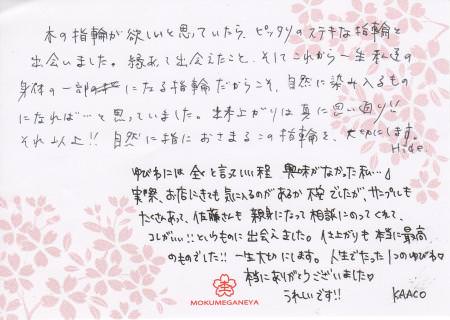 木の指輪が欲しいと思っていたら、ピッタリのステキな指輪と
出会いました。縁あって出会えたこと、そしてこれから一生私達の
身体の一部になる指輪だからこそ、自然に染み入るもの
になれば…と思っていました。出来上がりは真に思い通り!!
それ以上!! 自然に指におさまるこの指輪を、大切にします。
Hide.
ゆびわには全くと言っていい程 興味がなかった私…♩
実際、お店にきても気に入るのがあるか不安でしたが、サンプルも
たくさんあって、佐藤さんも親身になって相談にのってくれて、
コレがいい!!というものに出会えました。仕上がりも本当に最高
のものでした!! 一生大切にします。人生でたった1つのゆびわ♡
本当にありがとうございました♡
うれしいです!!
KAACO
MOKUMEGANEYA